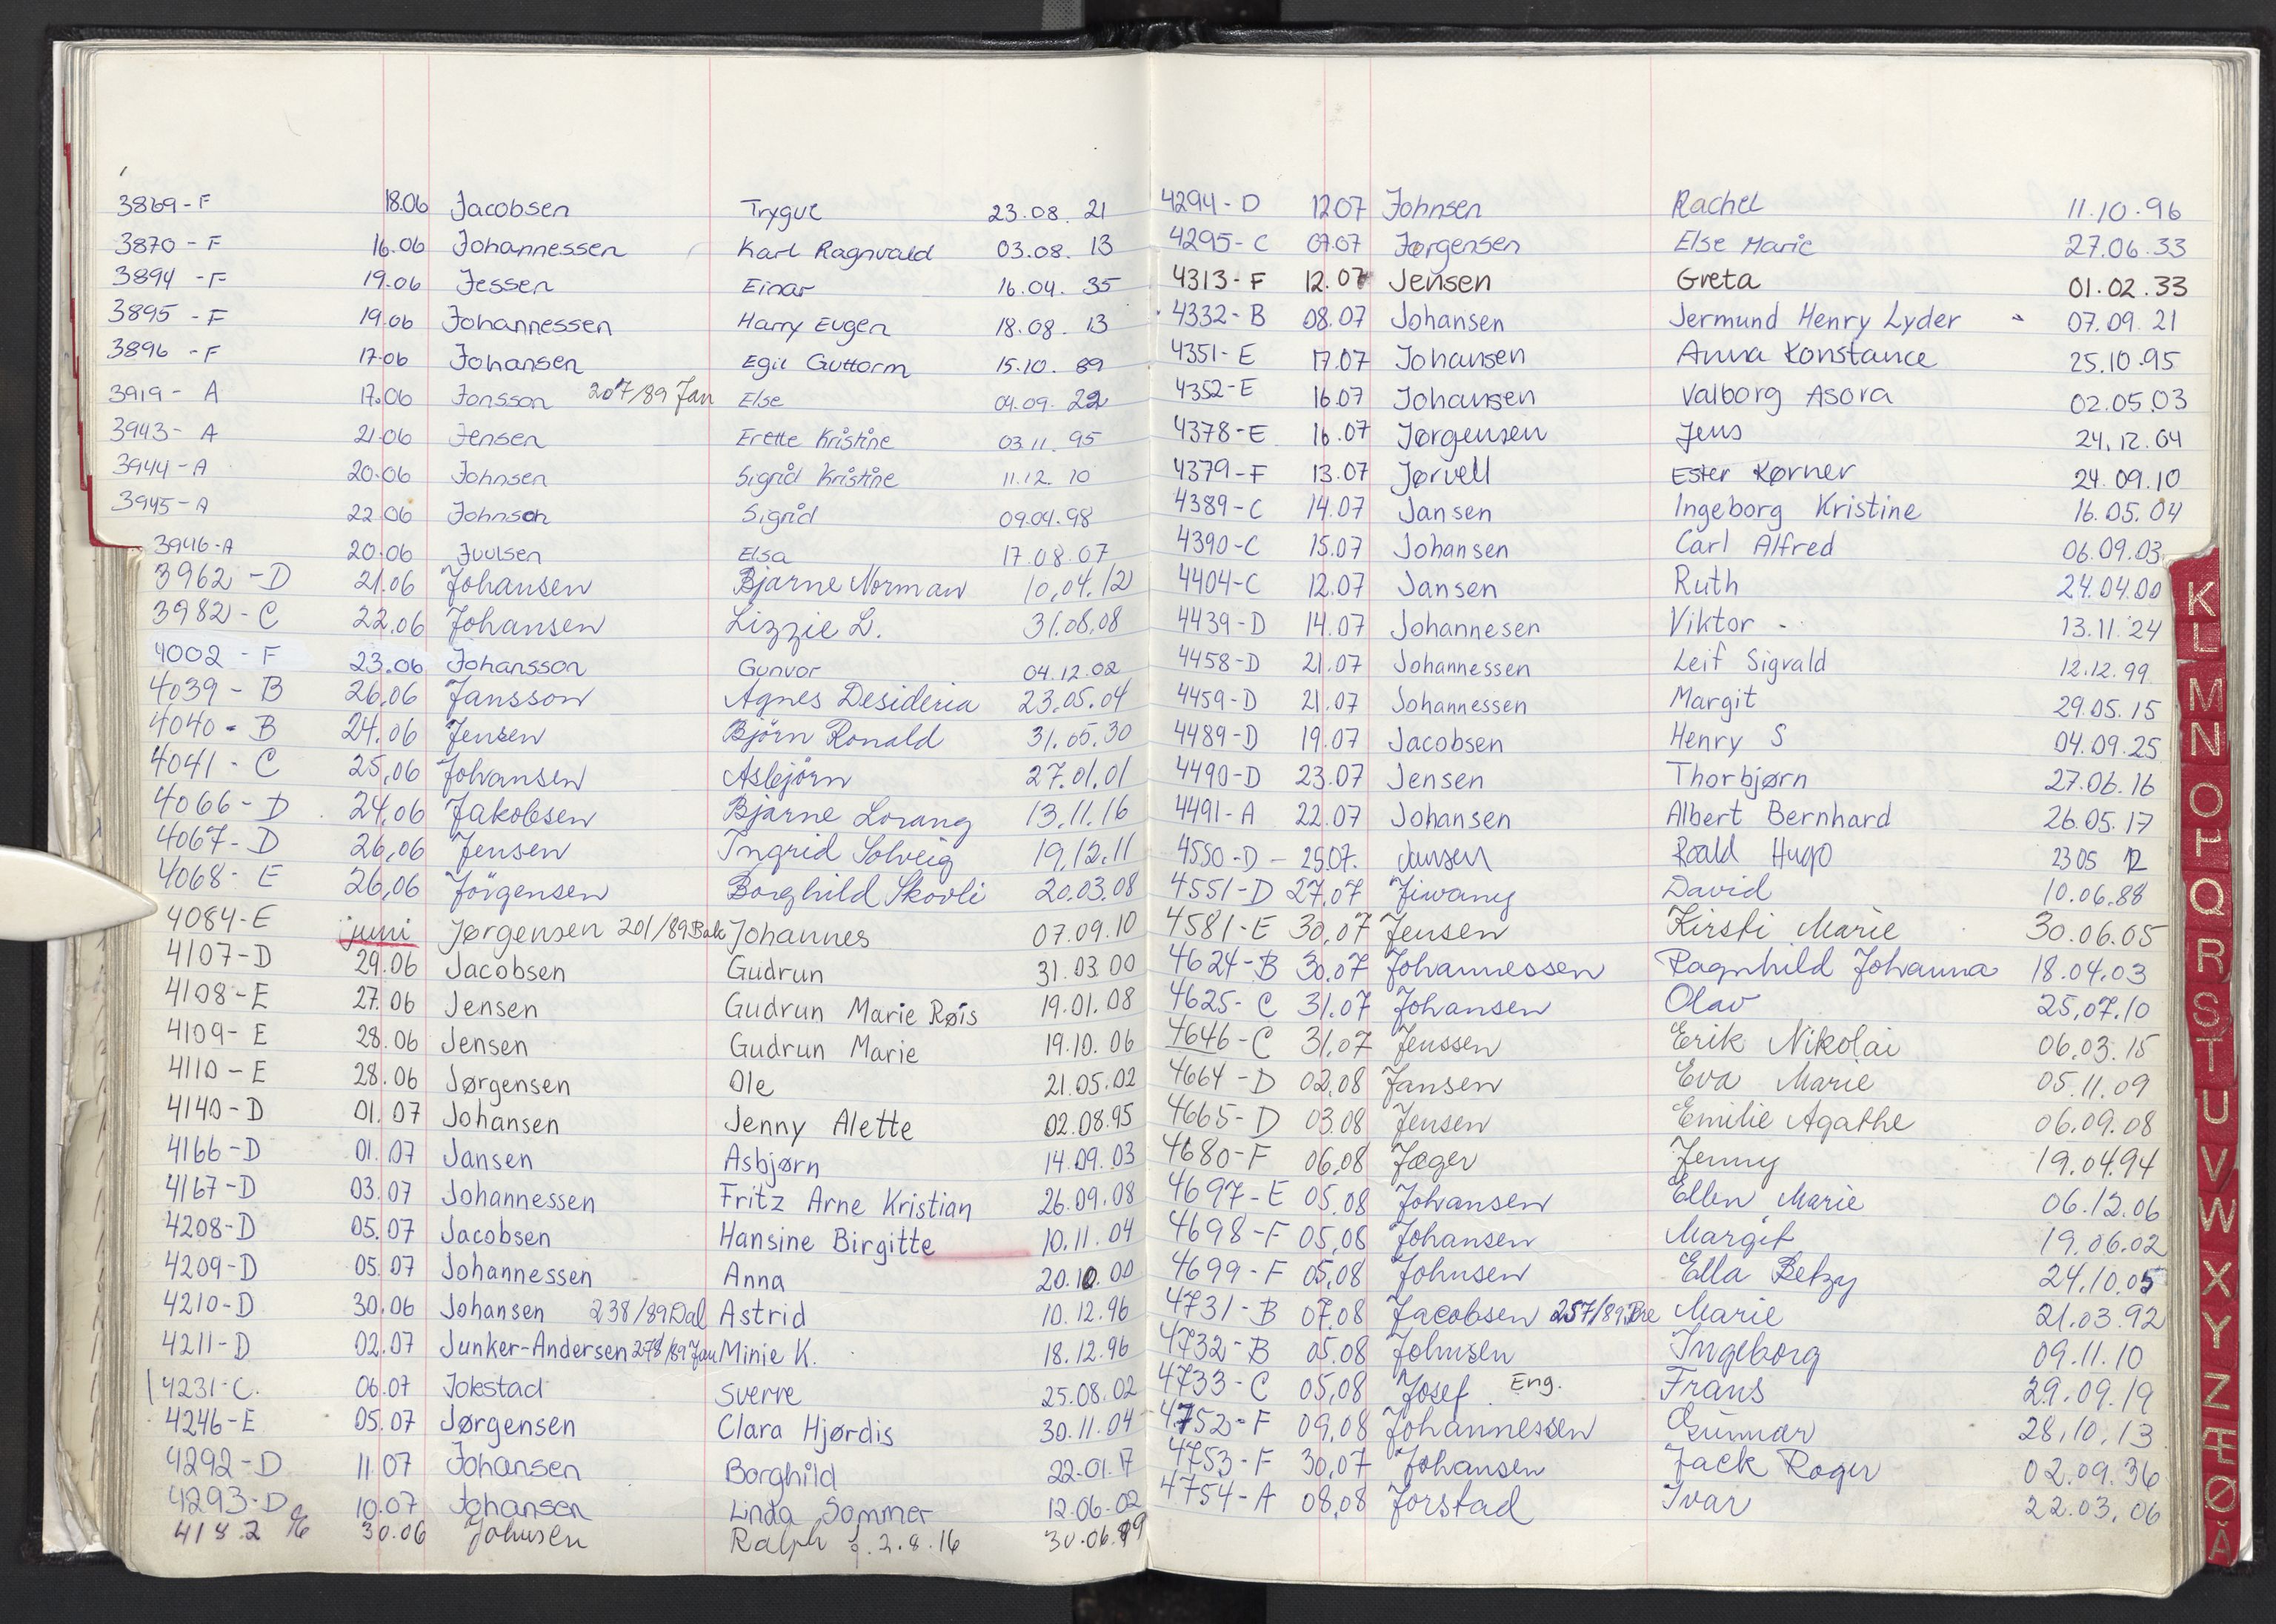 3869-F 18.06 Jacobsen Trygve 23.08.21
3870-F 16.06 Johannessen Karl Ragnvald 03.08.13
3894-F 19.06 Jessen Einar 16.04.35
3895-F 19.06 Johannessen Harry Eugen 18.08.13
3896-F 17.06 Johansen Egil Guttorm 15.10.89
3919-A 17.06 Jonsson 207/89 Jan Else 04.09.22
3943-A 21.06 Jensen Erette Kristine 03.11.95
3944-A 20.06 Johnsen Sigrid Kristine 11.12.10
3945-A 22.06 Johnsen Sigrid 09.04.98
3946-A 20.06 Juulsen Elsa 17.08.07
3962-D 21.06 Johansen Bjarne Norman 10.04.12
3982-C 22.06 Johansen Lizzie L. 31.08.08
4002-F 23.06 Johansson Gunvor 04.12.02
4039-B 26.06 Jansson Agnes Desideria 23.05.04
4040-B 24.06 Jensen Björn Ronald 31.05.30
4041-C 25.06 Johansen Asbjörn 27.01.01
4066-D 24.06 Jakobsen Bjarne Lorang 13.11.16
4067-D 26.06 Jensen Ingrid Solveig 19.12.11
4068-E 26.06 Jörgensen Borghild Skovli 20.03.08
4084-E juni Jørgensen 201/89 Bak Johannes 07.09.10
4107-D 29.06 Jacobsen Gudrun 31.03.00
4108-E 27.06 Jensen Gudrun Marie Røis 19.01.08
4109-E 28.06 Jensen Gudrun Marie 19.10.06
4110-E 28.06 Jørgensen Ole 21.05.02
4140-D 01.07 Johansen Jenny Alette 02.08.95
4166-D 01.07 Jansen Asbjørn 14.09.03
4167-D 03.07 Johannessen Fritz Arne Kristian 26.09.08
4208-D 05.07 Jacobsen Hansine Birgitte 10.11.04
4209-D 05.07 Johannessen Anna 20.10.00
4210-D 30.06 Johansen 238/89 Dal Astrid 10.12.96
4211-D 02.07 Junker-Andersen 278/89 Jan Minie K. 18.12.96
4231-C. 06.07 Jolestad Sverre 25.08.02
4246-E 05.07 Jørgensen Clara Hjørdis 30.11.04
4292-D 11.07 Johansen Borghild 22.01.17
4293-D 10.07 Johansen Linda Sommer 12.06.02
4182 30.06 Johnsen Ralph f. 2.8.16 30.06.89
4294-D 12.07 Johnsen Rachel 11.10.96
4295-C 07.07 Jørgensen Else Marie 27.06.33
4313-F 12.07 Jensen Greta 01.02.33
4332-B 08.07 Johansen Jermund Henry Lyder 07.09.21
4351-E 17.07 Johansen Anna Konstance 25.10.95
4352-E 16.07 Johansen Valborg Asora 02.05.03
4378-E 16.07 Jørgensen Jens 24.12.04
4379-F 13.07 Jørvell Ester Kørner 24.09.10
4389-C 14.07 Jansen Ingeborg Kristine 16.05.04
4390-C 15.07 Johansen Carl Alfred 06.09.03
4404-C 12.07 Jansen Ruth 24.04.00
4439-D 14.07 Johannesen Viktor 13.11.24
4458-D 21.07 Johannessen Leif Sigvald 12.12.99
4459-D 21.07 Johannessen Margit 29.05.15
4489-D 19.07 Jacobsen Henry S 04.09.25
4490-D 23.07 Jensen Thorbjørn 27.06.16
4491-A 22.07 Johansen Albert Bernhard 26.05.17
4550-D - 25.07. Jansen Roald Hugo 23 05 12
4551-D 27.07 Jiwany David 10.06.88
4581-E 30.07 Jensen Kirsti Marie 30.06.05
4624-B 30.07 Johannessen Ragnhild Johanna 18.04.03
4625-C 31.07 Johansen Olav 25.07.10
4646-C 31.07 Jenssen Erik Nikolai 06.03.15
4664-D 02.08 Jansen Eva Marie 05.11.09
4665-D 03.08 Jensen Emilie Agathe 06.09.08
4680-F 06.08 Jæger Jenny 19.04.94
4697-E 05.08 Johansen Ellen Marie 06.12.06
4698-F 05.08 Johansen Margit 19.06.02
4699-F 05.08 Johnsen Ella Betzy 24.10.05
4731-B 07.08 Jacobsen 257/89 Bre Marie 21.03.92
4732-B 05.08 Johnsen Ingeborg 09.11.10
4733-C 05.08 Josef Eng. Frans 29.09.19
4752-F 09.08 Johannessen Gunnar 28.10.13
4753-F 30.07 Johansen Jack Roger 02.09.36
4754-A 08.08 Jorstad Ivar 22.03.06
K
L
M
N
O
P
Q
R
S
T
U
V
W
X
Y
Z
Æ
Ø
Å